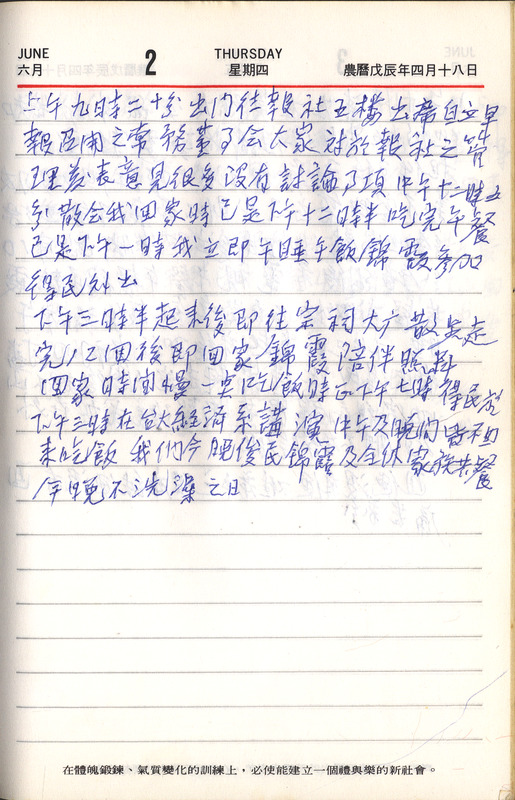 JUNE 2 THURSDAY
六月 星期四 農曆戊辰年四月十八日
上午九時二十分出門往報社五樓出席自立早
報召開之常務董了会大家討於報社之管
理發表意見很多沒有討論了項中午十二時五
分散会我回家時已是下午十二時半吃完午餐
已是下午一時我立即午睡午飯錦霞參加
得民外出
下午三時半起來後即往宗祠大廣散步走
完12回後即回家錦霞陪伴照料
回家時间慢一点吃飯時正下午七時得民於
下午三時在台大経済系講演中午及晚间皆不回
來吃飯我们今晚俊民錦霞及全体家族共餐
今晚不洗澡之日
在體魄鍛鍊、氣質變化的訓練上，必使能建立一個禮與樂的新社會。